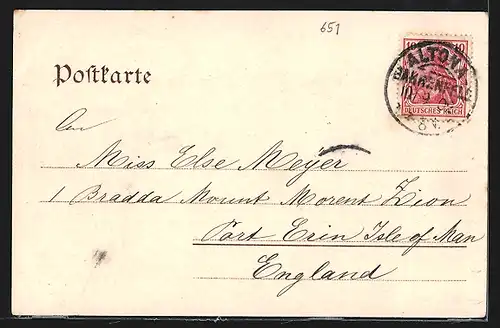 651
10 10
ALTONA
BAHRENFELD
DEUTSCHES REICH
8 V.
Postkarte
An
Miss Else Meyer
1 Bradda Mount Morent Zion
Port Erin Isle of Man
England